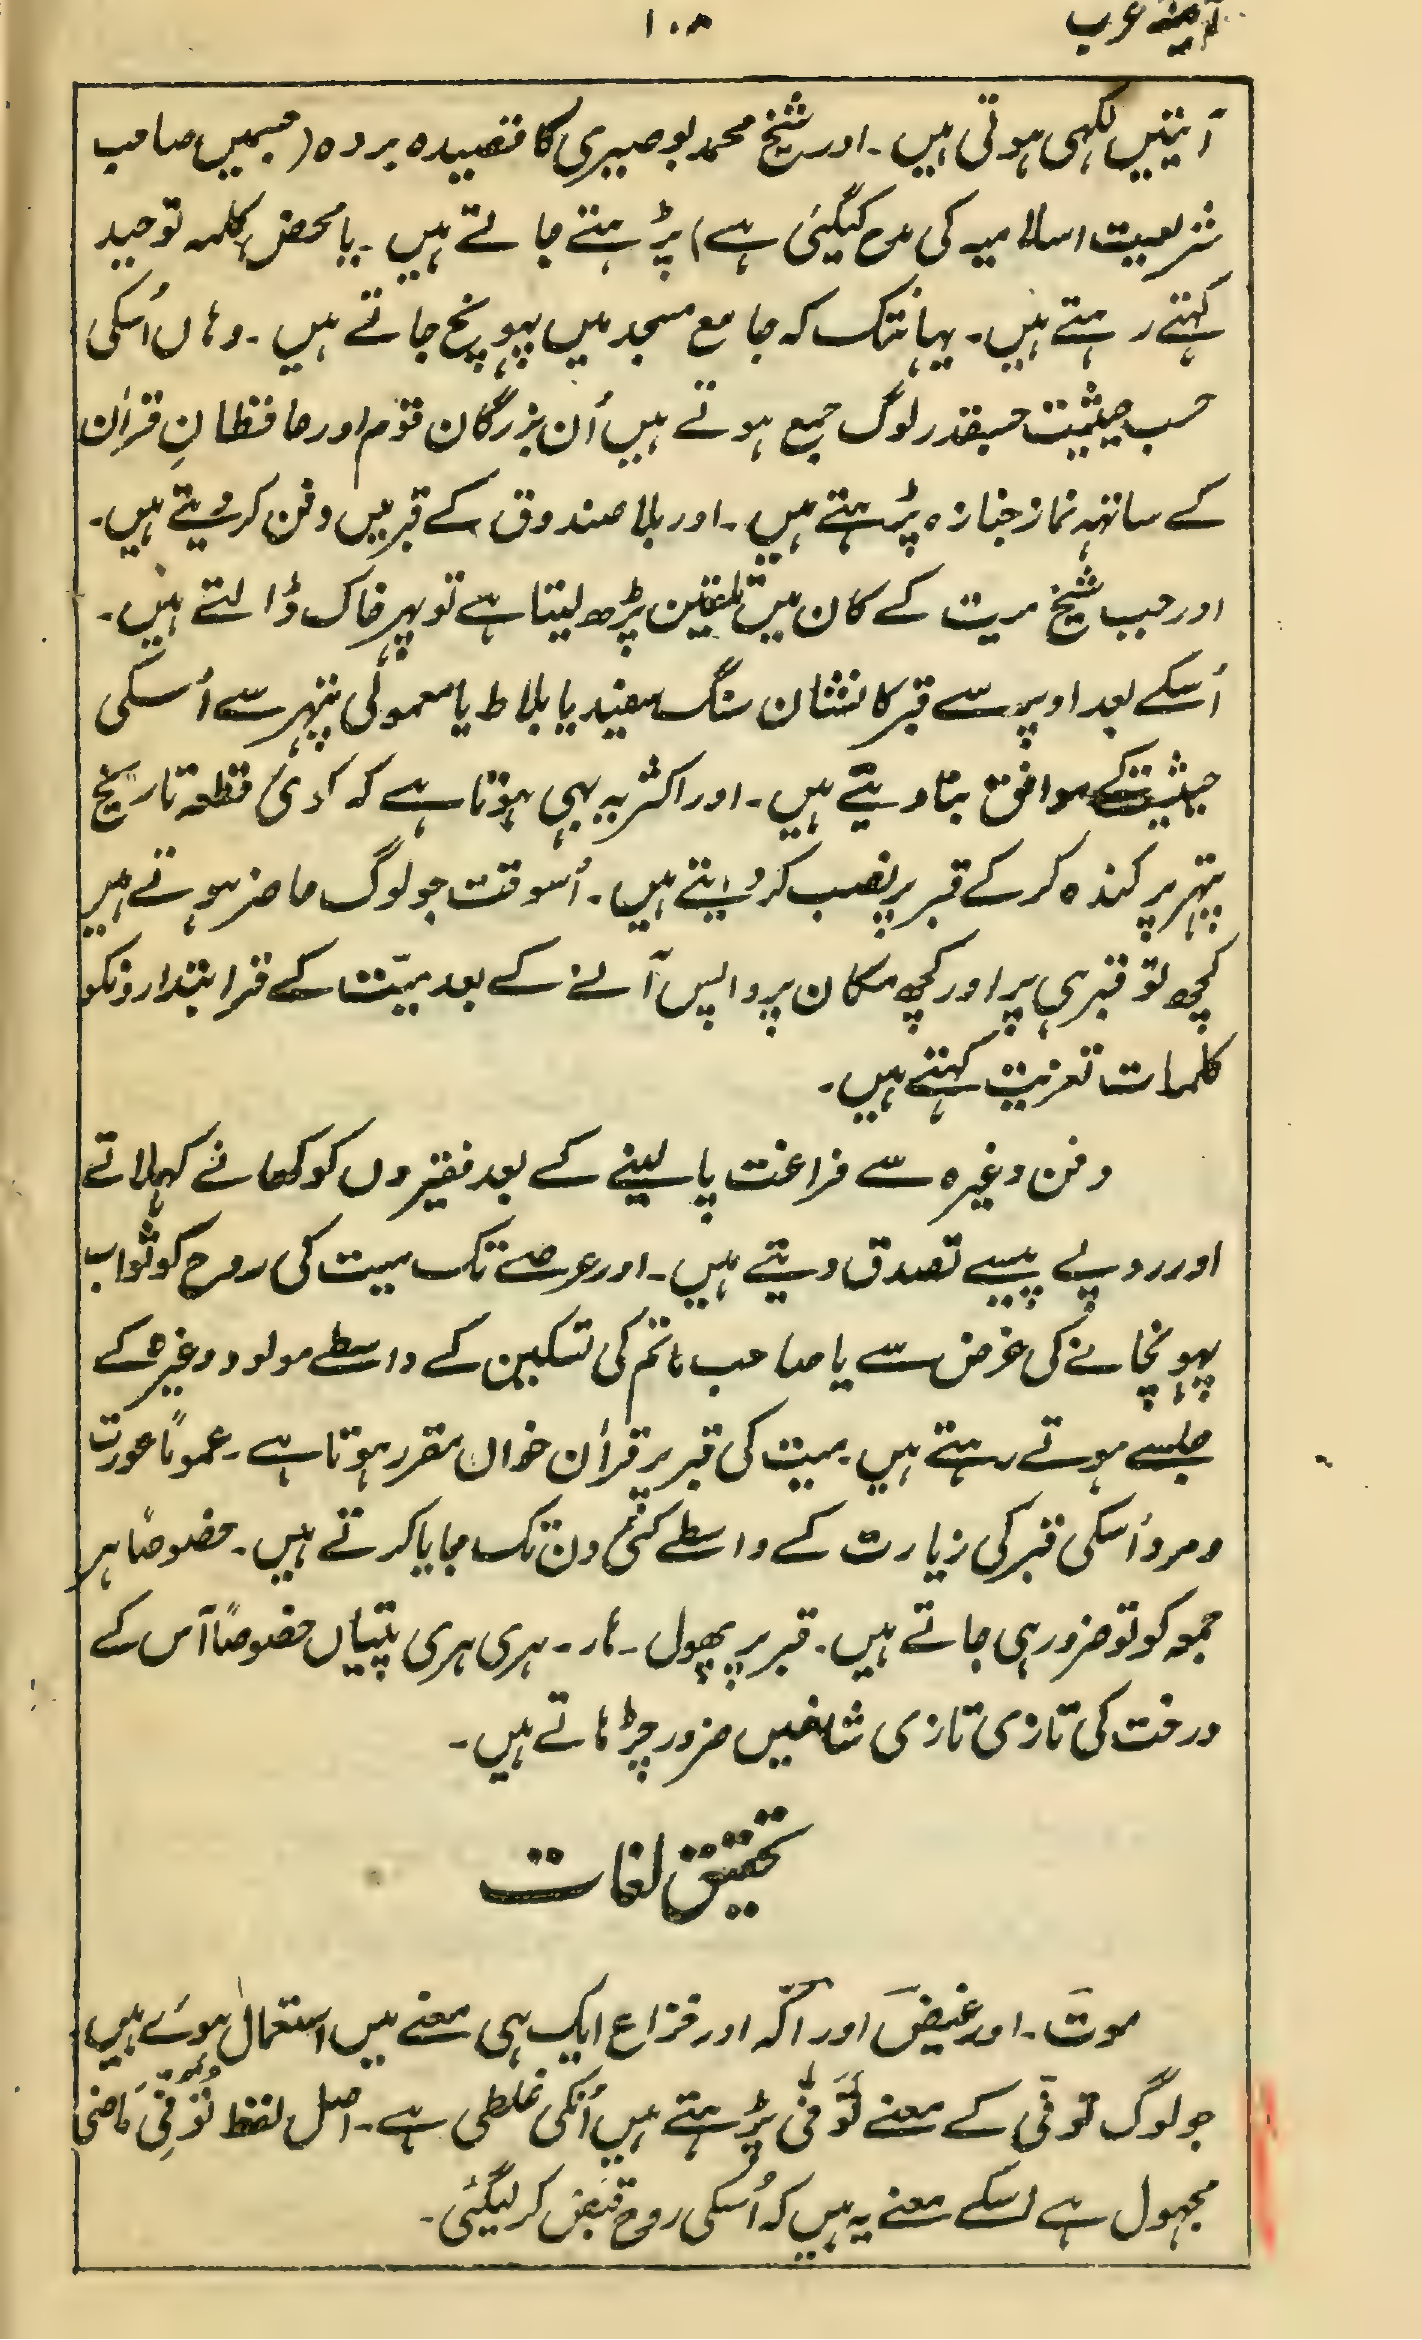 آئینہ عرب
۱۰۸
آیتیں لکھی ہوتی ہیں۔ اور شیخ محمد بوصیری کا قصیدہ بردہ (جسمیں صاحب
شریعت اسلامیہ کی مدح کیگئی ہے) پڑہتے جاتے ہیں۔ یا محض کلمہ توحید
کہتے رہتے ہیں۔ یہانتک کہ جامع مسجد میں پہونچ جاتے ہیں۔ وہاں اُسکی
حسب حیثیت جسقدر لوگ جمع ہوتے ہیں اُن بزرگان قوم اور حافظانِ قرآن
کے ساتھہ نماز جنازہ پڑہتے ہیں۔ اور بلا صندوق کے قبر میں دفن کر دیتے ہیں۔
اور جب شیخ میت کے کان میں تلقین پڑھ لیتا ہے تو پہر خاک ڈالتے ہیں۔
اُسکے بعد اوپر سے قبر کا نشان سنگ سفید یا بلاط یا معمولی پتہر سے اُسکی
حیثیت کے موافق بنا دیتے ہیں۔ اور اکثر یہ بہی ہوتا ہے کہ کوئی قطعہ تاریخ
پتہر پر کندہ کر کے قبر پر نصب کر دیتے ہیں۔ اُسوقت جو لوگ حاضر ہوتے ہیں
کچھ تو قبر ہی پر اور کچھ مکان پر واپس آنے کے بعد میّت کے قرابتدارونکو
کلمات تعزیت کہتے ہیں۔
دفن وغیرہ سے فراغت پا لینے کے بعد فقیروں کو کھانے کہلاتے
اور روپے پیسے تصدق دیتے ہیں۔ اور عرصے تک میت کی روح کو ثواب
پہونچانے کی غرض سے یا صاحب ماتم کی تسکین کے واسطے مولود وغیرہ کے
جلسے ہوتے رہتے ہیں۔ میت کی قبر پر قرآن خواں مقرر ہوتا ہے۔ عموماً عورت
و مرد اُسکی قبر کی زیارت کے واسطے کئی دن تک جایا کرتے ہیں۔ خصوصًا ہر
جمعہ کو تو ضرور ہی جاتے ہیں۔ قبر پر پھول۔ ہار۔ ہری ہری پتیاں خصوصًا آس کے
درخت کی تازی تازی شاخیں ضرور چڑہاتے ہیں۔
تحقیق لغات
موتَ۔ اور غیضَ اور اور فزاع ایک ہی معنے میں استعمال ہوئے ہیں
جو لوگ توفّی کے معنے تَوَفّٰی پڑہتے ہیں اُنکی غلطی ہے۔ اصل لفظ تُوُفِّیَ ماضی
مجہول ہے اسکے معنے یہ ہیں کہ اُسکی روح قبض کر لیگئی۔